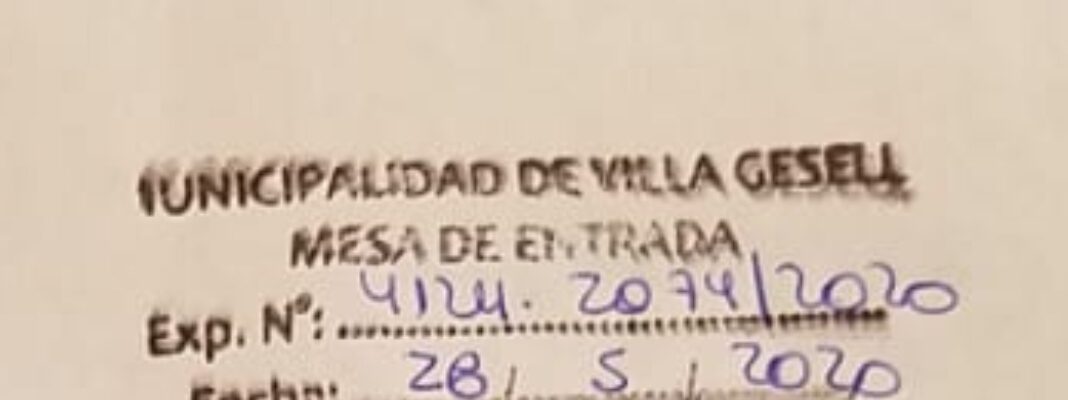 MUNICIPALIDAD DE VILLA GESELL
MESA DE ENTRADA
Exp. Nº: 4124. 2074/2020
Fecha: 28/ 5 / 2020